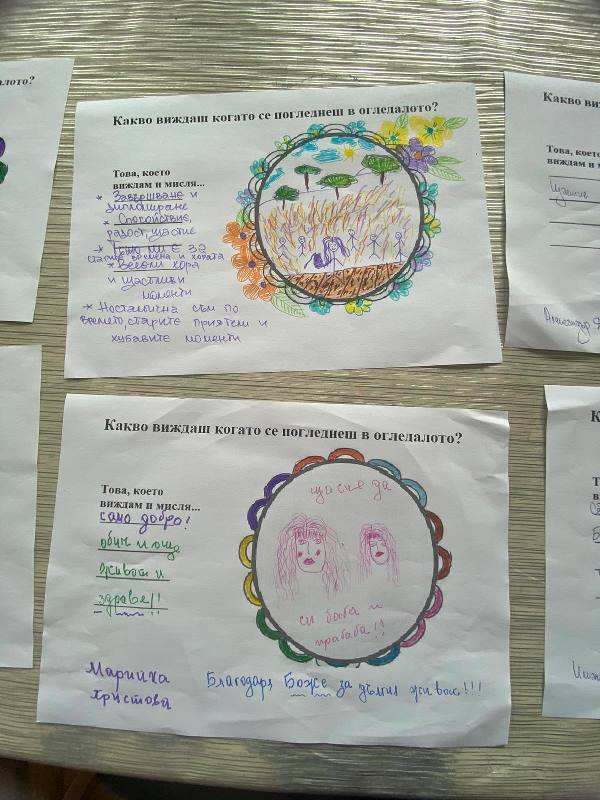 алото?
Какво виждаш когато се погледнеш в огледалото?
Това, което
виждам и мисля...
* Завършване и
дипломиране
* Спокойствие,
радост, щастие
* Тъжно ми е за
старите времена и хората
* Весели хора
и щастливи
моменти
* Носталгична съм по
времето, старите приятели и
хубавите моменти
Какво виж
Това, което
виждам и м
Александър
Какво виждаш когато се погледнеш в огледалото?
Това, което
виждам и мисля...
само добро!
обич и още
живот и
здраве!!
щастие да
си баба и
прабаба!!
Марийка
Христова
Благодаря Боже за дългия живот!!!